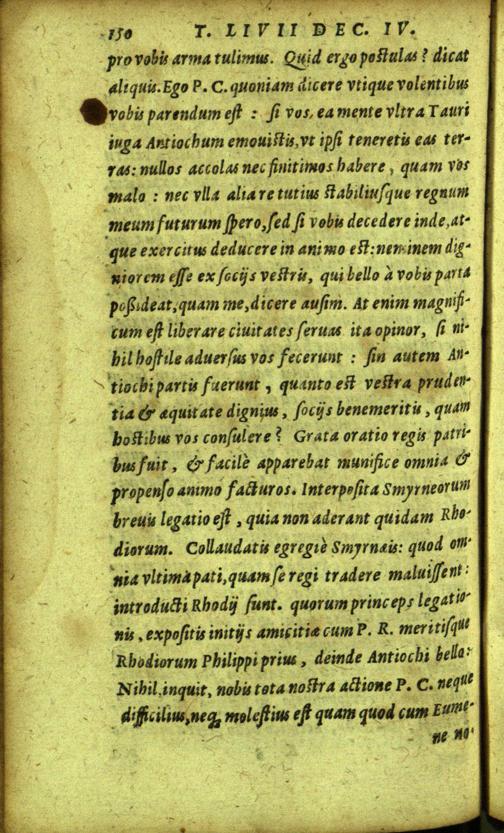 150 T. LIVII DEC. IV.
pro vobis arma tulimus. Quid ergo postulas? dicat
aliquis. Ego P. C. quoniam dicere vtique volentibus
vobis parendum est : si vos, ea mente vltra Tauri
iuga Antiochum emouistis, vt ipsi teneretis eas ter-
ras: nullos accolas nec finitimos habere, quam vos
malo : nec vlla alia re tutius stabiliusque regnum
meum futurum spero, sed si vobis decedere inde, at-
que exercitus deducere in animo est: neminem dig-
niorem esse ex socijs vestris, qui bello à vobis parta
possideat, quam me, dicere ausim. At enim magnifi-
cum est liberare ciuitates seruas ita opinor, si ni-
hil hostile aduersus vos fecerunt : sin autem An-
tiochi partis fuerunt, quanto est vestra pruden-
tia & æquitate dignius, socijs benemeritis, quam
hostibus vos consulere? Grata oratio regis patri-
bus fuit, & facilè apparebat munifice omnia &
propenso animo facturos. Interposita Smyrneorum
breuis legatio est, quia non aderant quidam Rho-
diorum. Collaudatis egregiè Smyrnæis: quod om-
nia vltima pati, quam se regi tradere maluissent:
introducti Rhodij sunt. quorum princeps legatio-
nis, expositis initijs amicitiæ cum P. R. meritisque
Rhodiorum Philippi prius, deinde Antiochi bello:
Nihil, inquit, nobis tota nostra actione P. C. neque
difficilius, neq; molestius est quam quod cum Eume-
ne no-